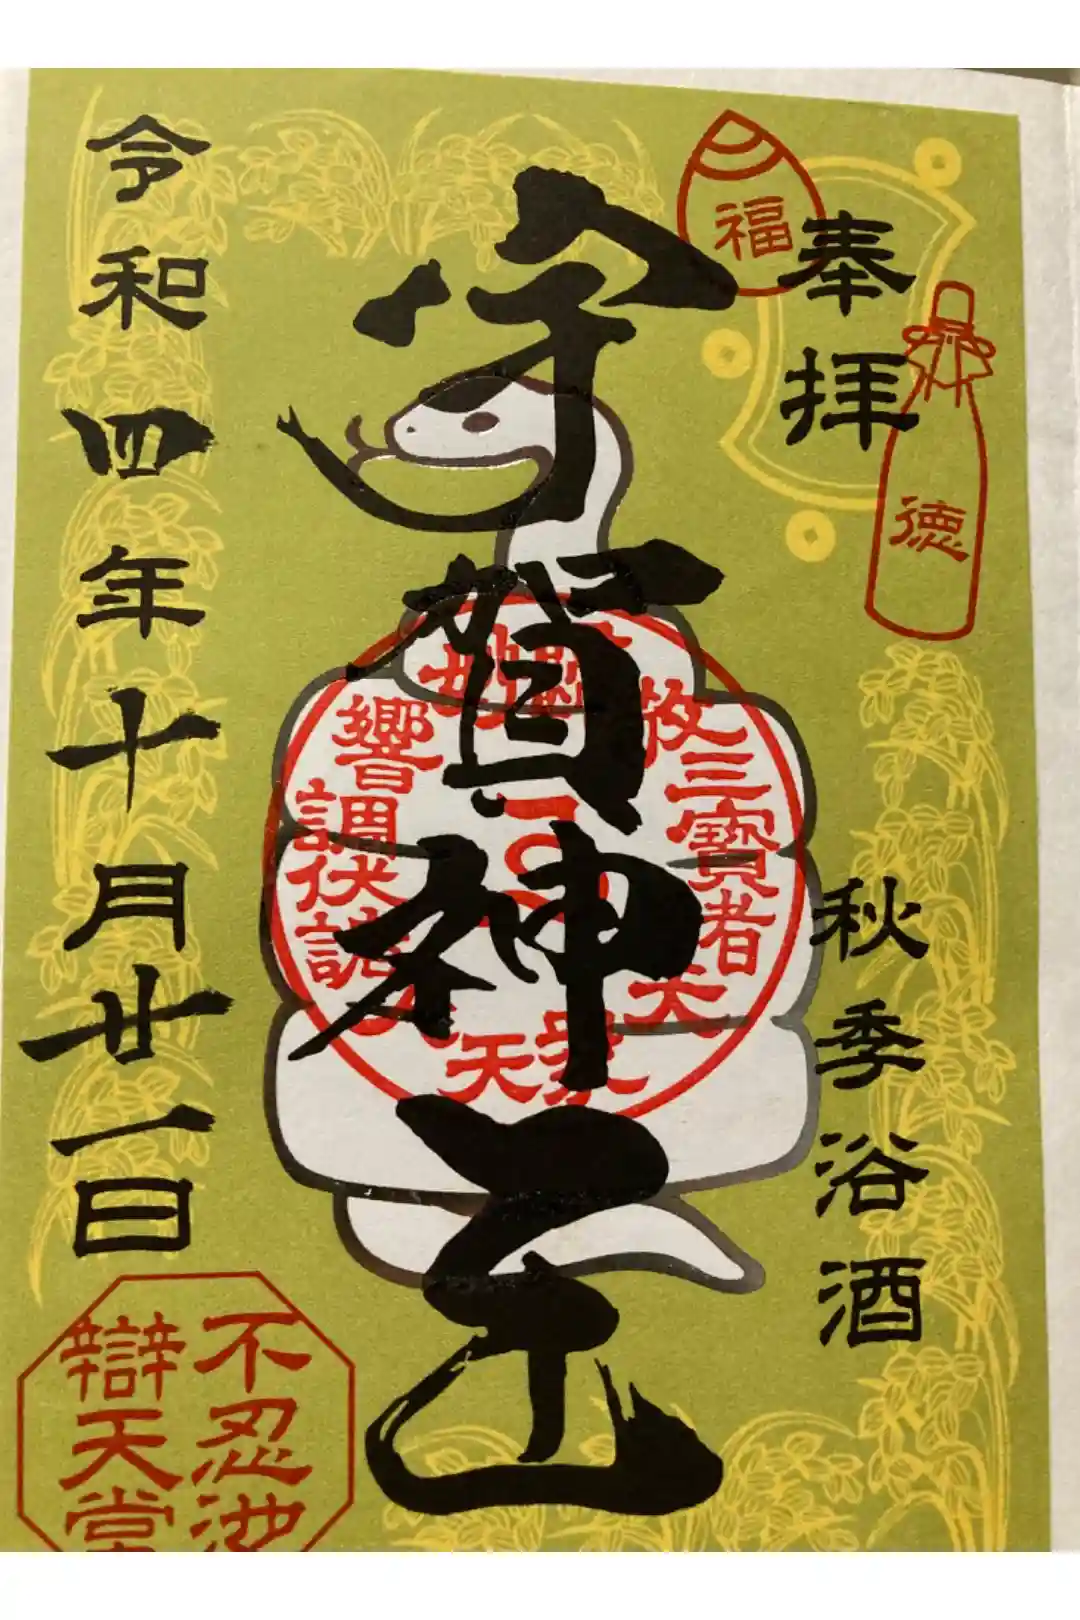 奉拝
福
徳
秋季浴酒
宇賀神王
牧三寶者
天
天
響調伏
令和四年十月廿一日
不忍池
辯天堂